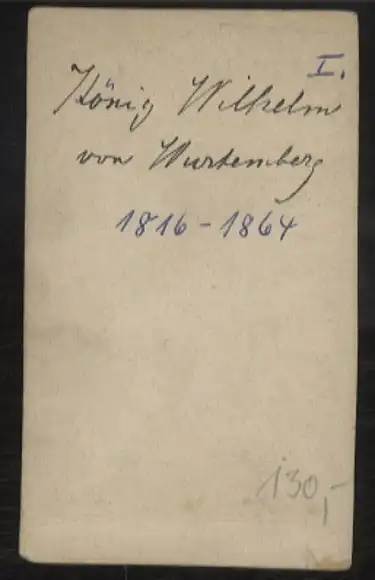 I.
König Wilhelm
von Wurtemberg
1816-1864
130,-